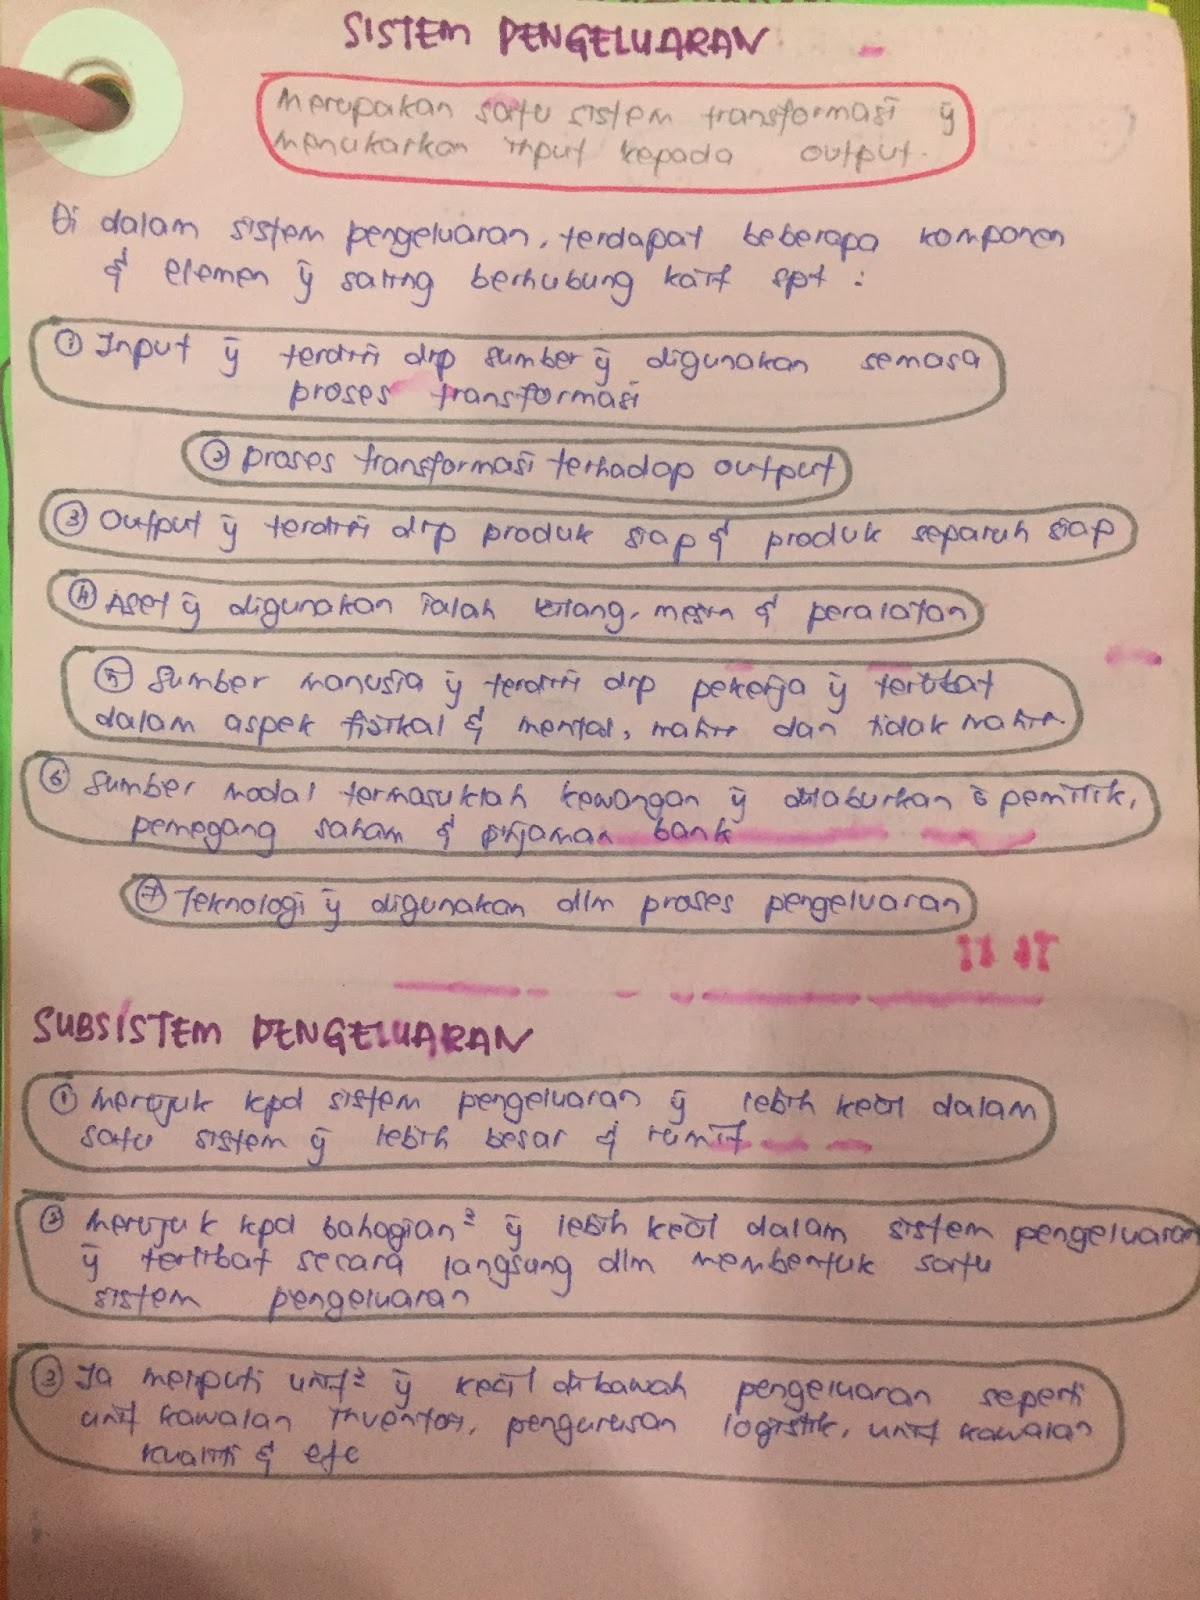 SISTEM PENGELUARAN
Merupakan satu sistem transformasi ȳ
menukarkan input kepada output.
Di dalam sistem pengeluaran, terdapat beberapa komponen
& elemen ȳ saling berhubung kait spt :
① Input ȳ terdiri drp sumber ȳ digunakan semasa
proses transformasi
② proses transformasi terhadap output
③ Output ȳ terdiri drp produk siap & produk separuh siap
④ Aset ȳ digunakan ialah kilang, mesin & peralatan
⑤ Sumber manusia ȳ terdiri drp pekerja ȳ terlibat
dalam aspek fizikal & mental, mahir dan tidak mahir.
⑥ Sumber modal termasuklah kewangan ȳ dilaburkan o pemilik,
pemegang saham & pinjaman bank
⑦ Teknologi ȳ digunakan dlm proses pengeluaran
SUBSISTEM PENGELUARAN
① Merujuk kpd sistem pengeluaran ȳ lebih kecil dalam
satu sistem ȳ lebih besar & rumit
② Merujuk kpd bahagian² ȳ lebih kecil dalam sistem pengeluaran
ȳ terlibat secara langsung dlm membentuk satu
sistem pengeluaran
③ Ia meliputi unit² ȳ kecil dibawah pengeluaran seperti
unit kawalan inventori, pengurusan logistik, unit kawalan
kualiti & etc